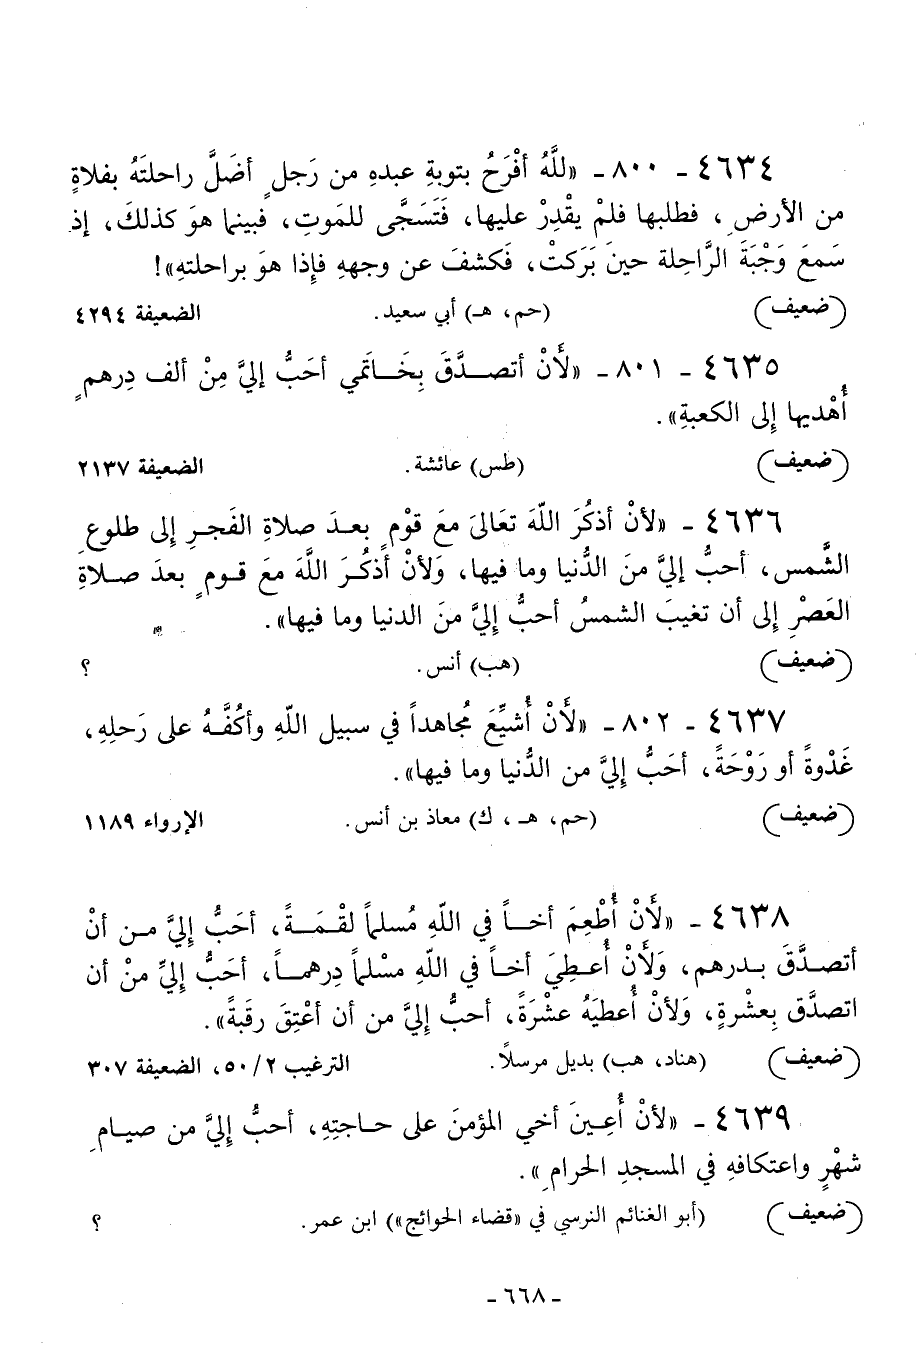 ٤٦٣٤ - ٨٠٠ - «للَّهُ أفْرَحُ بتوبةِ عبدهِ من رَجلٍ أضَلَّ راحلتَهُ بفلاةٍ
من الأرضِ، فطلبها فلمْ يقْدِرْ عليها، فَتَسَجَّى للمَوتِ، فبينما هوَ كذلكَ، إذ
سَمعَ وَجْبَةَ الرَّاحِلة حينَ بَرَكتْ، فَكشفَ عن وجههِ فإذا هوَ براحلتهِ»!
(ضعيف) (حم، هـ) أبي سعيد. الضعيفة ٤٢٩٤
٤٦٣٥ - ٨٠١ - «لَأَنْ أتصدَّقَ بِخَاتَمي أحَبُّ إليَّ مِنْ ألف دِرهمٍ
أُهْديها إلى الكعبةِ».
(ضعيف) (طس) عائشة. الضعيفة ٢١٣٧
٤٦٣٦ - «لأنْ أذكُرَ اللّهَ تعَالىَ معَ قوْمٍ بعدَ صلاةِ الفَجرِ إلى طلوعِ
الشَّمس، أحبُّ إليَّ منَ الدُّنيا وما فيها، وَلأنْ أذكُرَ اللَّهَ معَ قومٍ بعدَ صلاةِ
العَصْرِ إلى أن تغيبَ الشمسُ أحبُّ إليَّ منَ الدنيا وما فيها».
(ضعيف) (هب) أنس. ؟
٤٦٣٧ - ٨٠٢ - «لَأَنْ أُشيِّعَ مُجاهداً في سبيل اللّهِ وأكُفَّهُ على رَحلِهِ،
غَدْوةً أو رَوْحَةً، أحَبُّ إليَّ من الدُّنيا وما فيها».
(ضعيف) (حم، هـ، ك) معاذ بن أنس. الإرواء ١١٨٩
٤٦٣٨ - «لَأَنْ أُطْعِمَ أخاً في اللّهِ مُسلماً لقْمَةً، أحَبُّ إليَّ من أنْ
أتصدَّقَ بدرهم، وَلَأَنْ أُعطِيَ أخاً في اللّهِ مسْلماً دِرهماً، أحَبُّ إليِّ منْ أن
اتصدَّق بِعشْرةٍ، وَلأنْ أُعطيَهُ عشْرَةً، أحبُّ إليَّ من أن أعْتِقَ رقبةً».
(ضعيف) (هناد، هب) بديل مرسلاً. الترغيب ٢/٥٠، الضعيفة ٣٠٧
٤٦٣٩ - «لأنْ أُعِينَ أخي المؤمنَ على حاجتِهِ، أحبُّ إليَّ من صيامِ
شهْرٍ واعتكافهِ في المسجدِ الحرامِ».
(ضعيف) (أبو الغنائم النرسي في «قضاء الحوائج») ابن عمر. ؟
- ٦٦٨ -